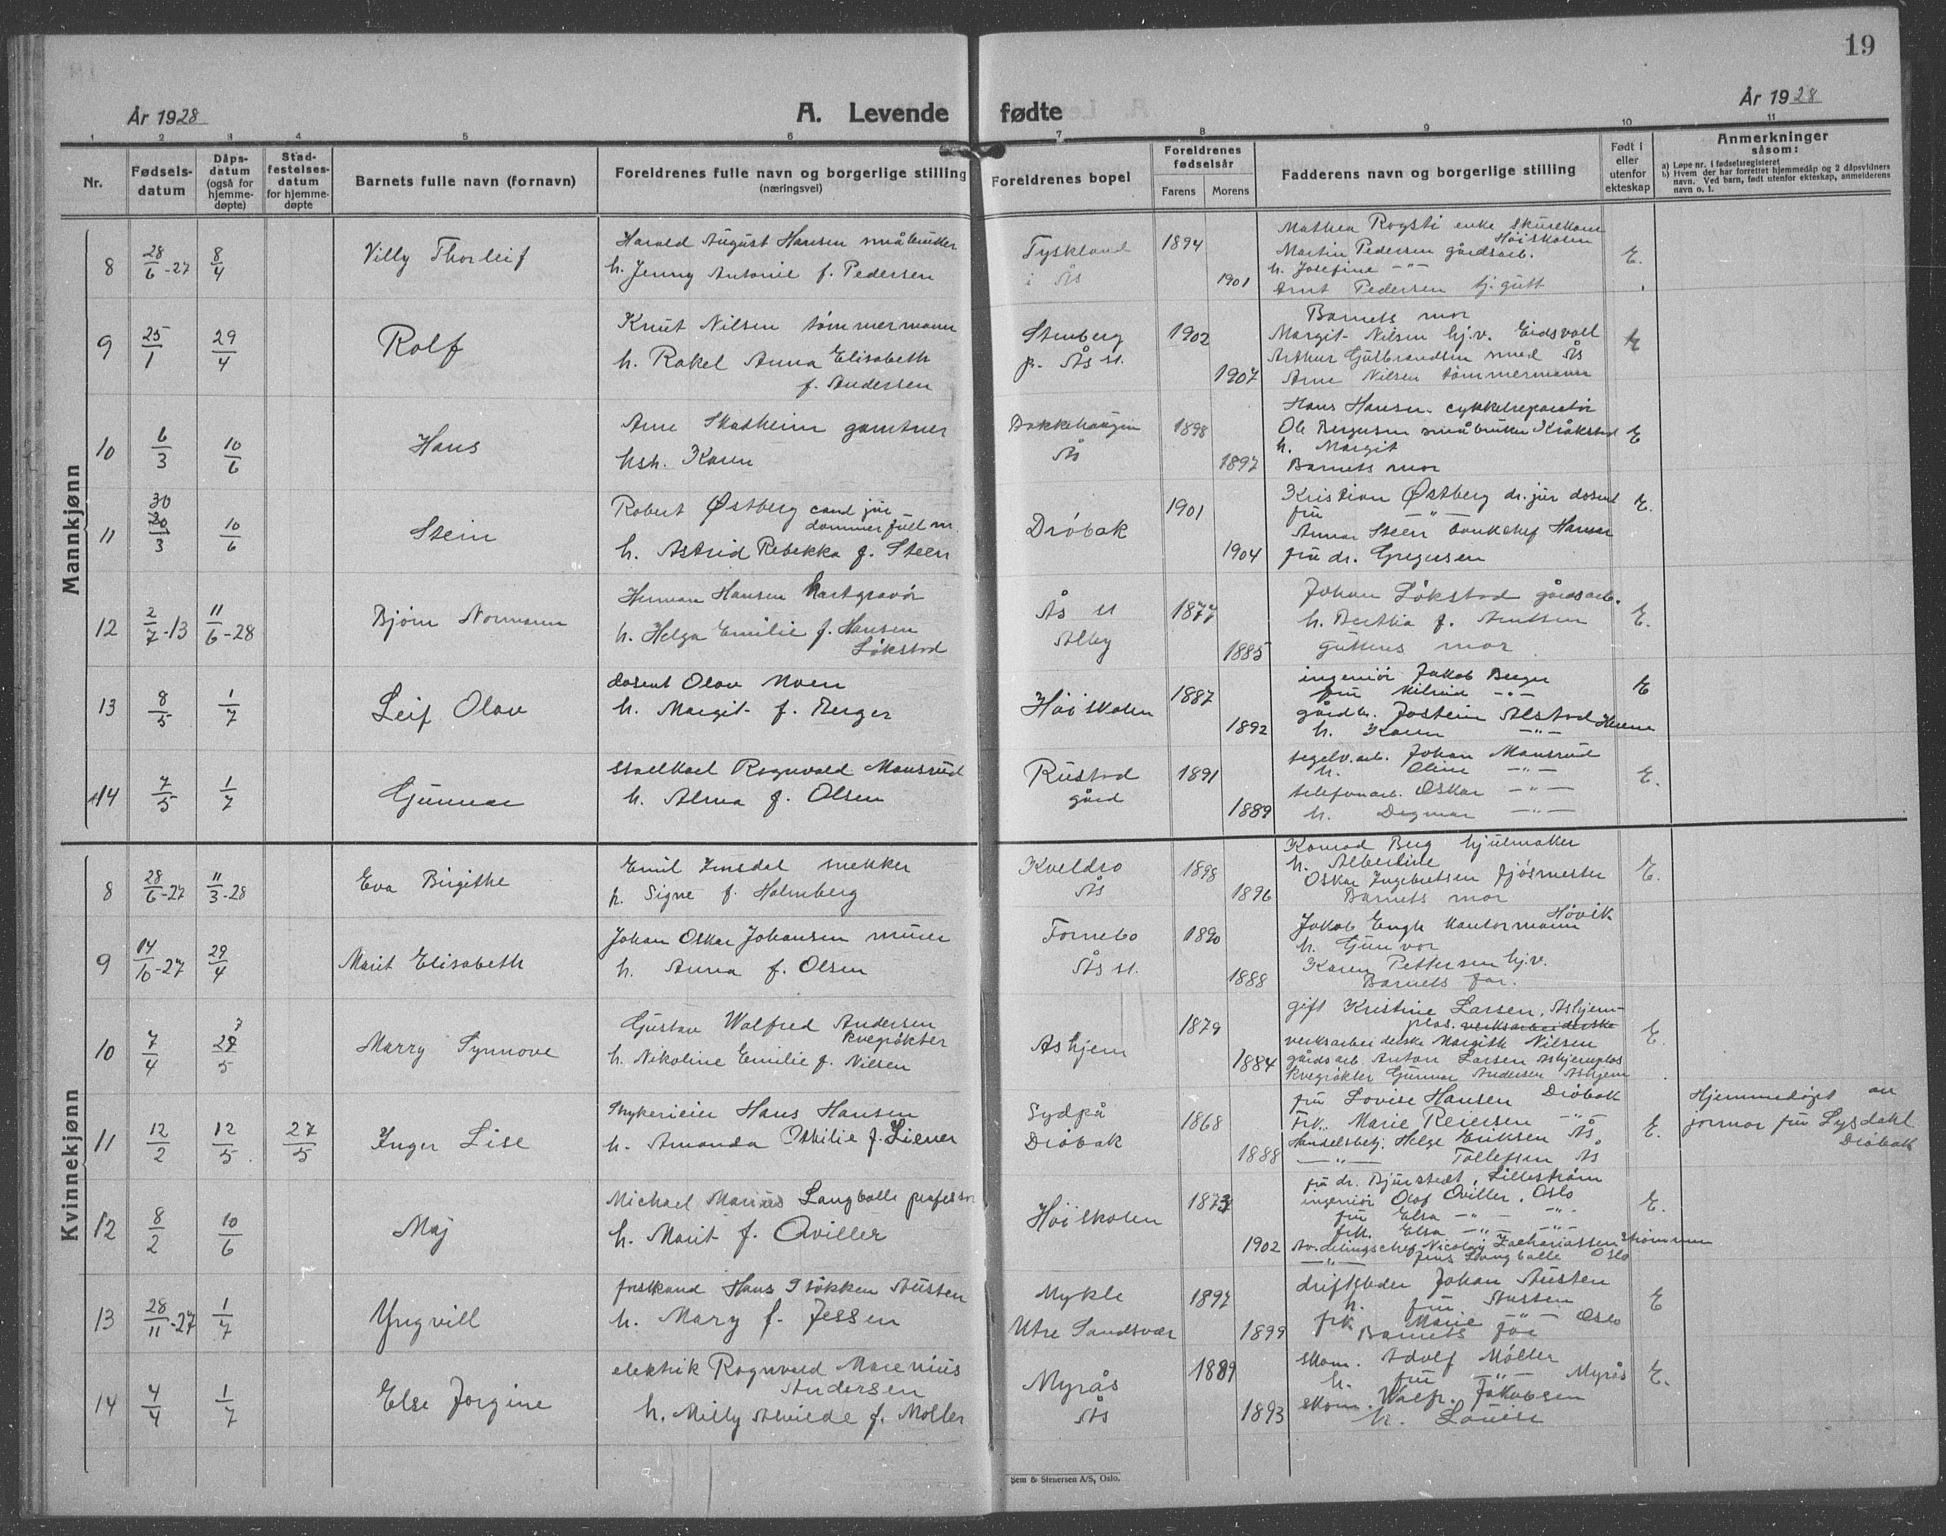 19
År 1928
A. Levende fødte
År 1928
1 2 3 4 5 6 7 8 9 10 11
Nr.
Fødsels-
datum
Dåps-
datum
(også for
hjemme-
døpte)
Stad-
festelses-
datum
for hjemme-
døpte
Barnets fulle navn (fornavn)
Foreldrenes fulle navn og borgerlige stilling
(næringsvei)
Foreldrenes bopel
Foreldrenes
fødselsår
Farens Morens
Fadderens navn og borgerlige stilling
Født i
eller
utenfor
ekteskap
Anmerkninger
såsom:
a) Løpe nr. i fødselsregisteret
b) Hvem der har forrettet hjemmedåp og 2 dåpsvidners
navn. Ved barn, født utenfor ekteskap, anmelderens
navn o. l.
Mannkjønn
8 28/6-27 8/4 Villy Thorleif
Harald August Hansen småbruker
h. Jenny Antonie f. Pedersen
Tyskland
i Ås
1894
1901
Mathea Rogsti enke
Høiskolen
Martin Pedersen gårdsarb.
h. Josefine -"-
Arnt Pedersen tj.gutt
E.
9 25/1 29/4 Rolf
Knut Nilsen tømmermann
h. Rakel Anna Elisabeth
f. Andersen
Stenberg
pr. Ås st.
1902
1907
Barnets mor
Margit Nilsen hj.v. Eidsvoll
Arthur Gulbrandsen smed Ås
Arne Nilsen tømmermann
E
10 6/3 10/6 Hans
Arne Skadheim gartner
hsh. Karen
Bakkehaugen
Ås
1898
1897
Hans Hansen cykkelreparatør
Ole Bergersen småbruker Kråkstad
h. Margit
Barnets mor
E
11 30 20/3 10/6 Stein
Robert Østberg cand jur
dommerfullm.
h. Astrid Rebekka f. Steen
Drøbak
1901
1904
Kristian Østberg dr. jur dosent
fru -"-
Annar Steen bankchef Hamar
fru dr. Gregersen
E.
12 2/7-13 11/6-28 Bjørn Normann
Herman Hansen kartgravør
h. Helga Emilie f. Hansen
Løkstad
Ås st
Alby
1877
1885
Johan Løkstad gårdsarb.
h. Berthia f. Arntsen
guttens mor
E.
13 8/5 1/7 Leif Olav
dosent Olav Moen
h. Margit f. Berger
Høiskolen
1887
1892
ingeniør Jakob Berger
fru Milrid -"-
gårdb. Jostein Alstad
h. Karen -"-
E
14 7/5 1/7 Gunnar
stallkarl Rognvald Mansrud
h. Alma f. Olsen
Rustad
gård
1891
1889
teglv.arb. Johan Mansrud
h. Oline -"-
telefonarb. Oskar -"-
h. Dagmar -"-
E.
Kvinnekjønn
8 28/6-27 11/3-28 Eva Birgithe
Emil Imsdal snekker
h. Signe f. Holmberg
Kveldro
Ås
1898
1896
Konrad Berg hjulmaker
h. Albertine
Oskar Ingebretsen fjøsmester
Barnets mor
E.
9 14/10-27 29/4 Marit Elisabeth
Johan Oskar Johansen murer
h. Anna f. Olsen
Fornebo
Ås st.
1890
1888
Høvik
Jakob Engh kontormann
h. Gunvor
Karen Pettersen hj.v.
Barnets far.
E.
10 7/4 27/5 Marry Synnove
Gustav Walfred Andersen
kvegrøkter
h. Nikoline Emilie f. Nilsen
Askjem
1879
1884
gift Kristine Larsen, Askjem-
plas. verksarbeiderske
verksarbeiderske Margith Nilsen
gårdsarb. Anton Larsen Askjemplas
kvegrøkter Gunnar Andersen Askjem
E.
11 12/2 12/5 27/5 Inger Lise
Hans Hansen
h. Amanda Othilie f. Liener
Sydpå
Drøbak
1868
1888
fru Lovise Hansen Drøbak
Frk. Marie Reiersen -"-
Handelsbetj. Helge Eriksen Ås
-"- Tollefsen Ås
E.
Hjemmedøpt av
jormor fru Lysdahl
Drøbak
12 8/2 10/6 Maj
Michael Marius Langballe professor
h. Marit f. Qviller
Høiskolen
1873
1902
fru dr. Bjunstedt, Lillestrøm
ingeniør Olaf Qviller, Oslo
fru Elsa -"- -"-
frk. Elsa -"- -"-
Avdelingschef Nicolay Zachariassen Strømmen
-"- Jens Langballe Oslo
E.
13 28/11-27 1/7 Yngvill
forstkand Hans Støkken Austen
h. Mary f. Jessen
Mykle
Ytre Sandsvær
1897
1899
driftsleder Johan Austen
h. fru Austen
frk. Marie -"- Oslo
Barnets far
E
14 4/4 1/7 Else Jorgine
elektrik Rognvald Marenius
Andersen
h. Milly Alvilde f. Møller
Myrås
Ås
1889
1893
skom. Adolf Møller
h. fru -"- Myrås
skom. Walfr. Jakobsen
h. Louise
E.
Sem & Stenersen A/S, Oslo.